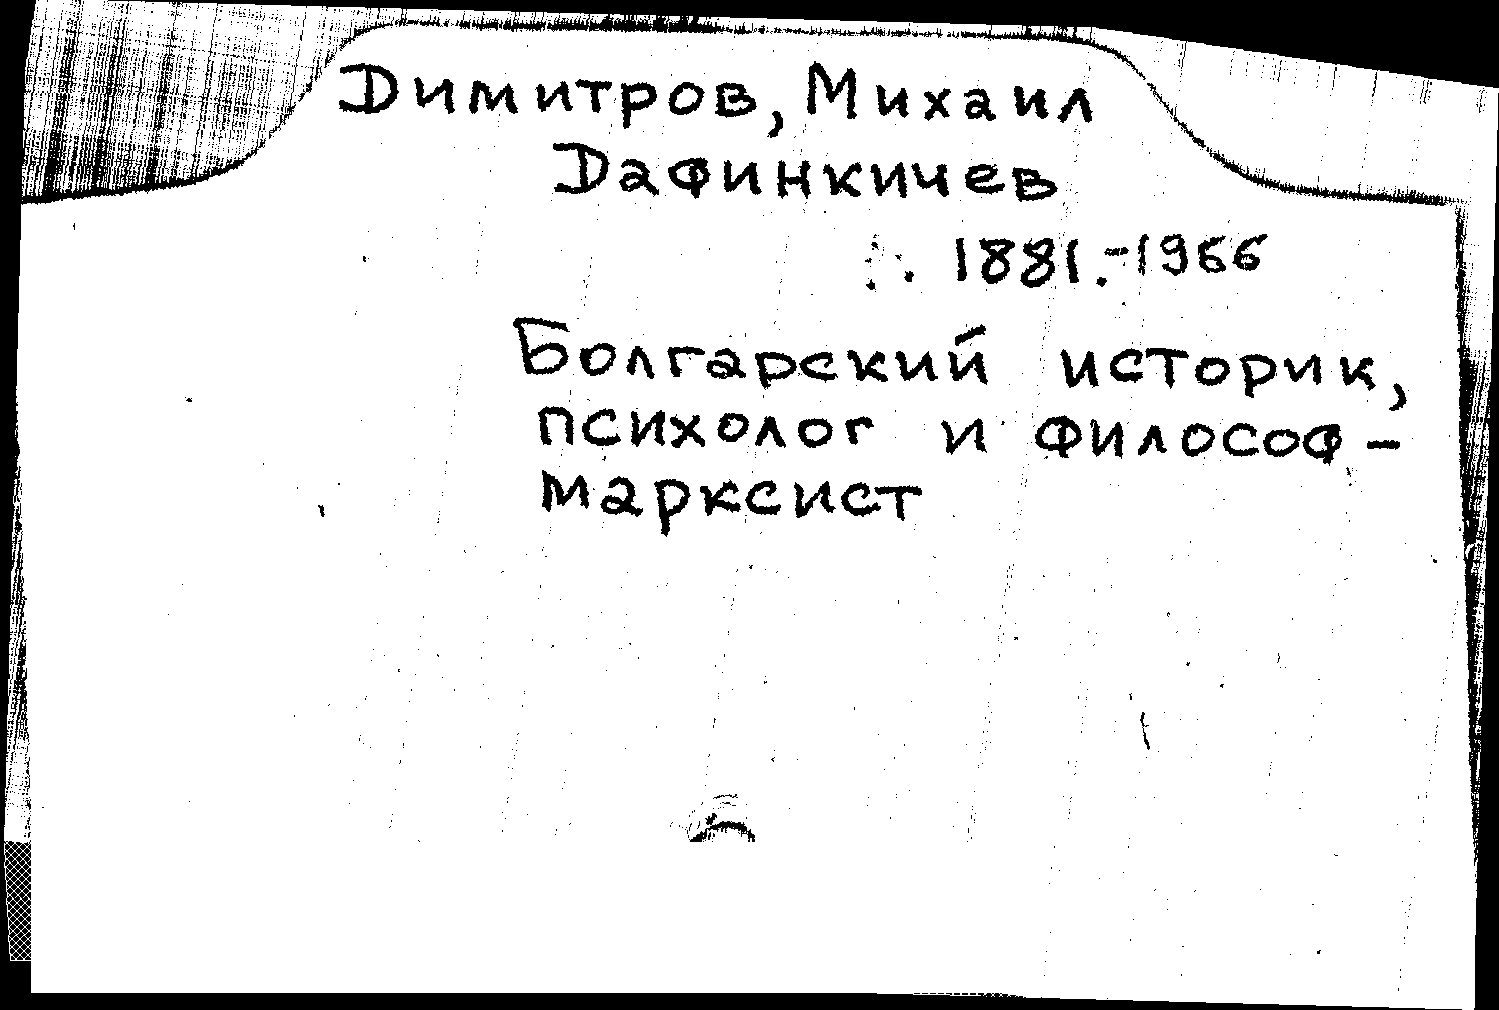 Димитров, Михаил
Дафинкичев
1881.-1966
Болгарский историк,
психолог и философ-
марксист